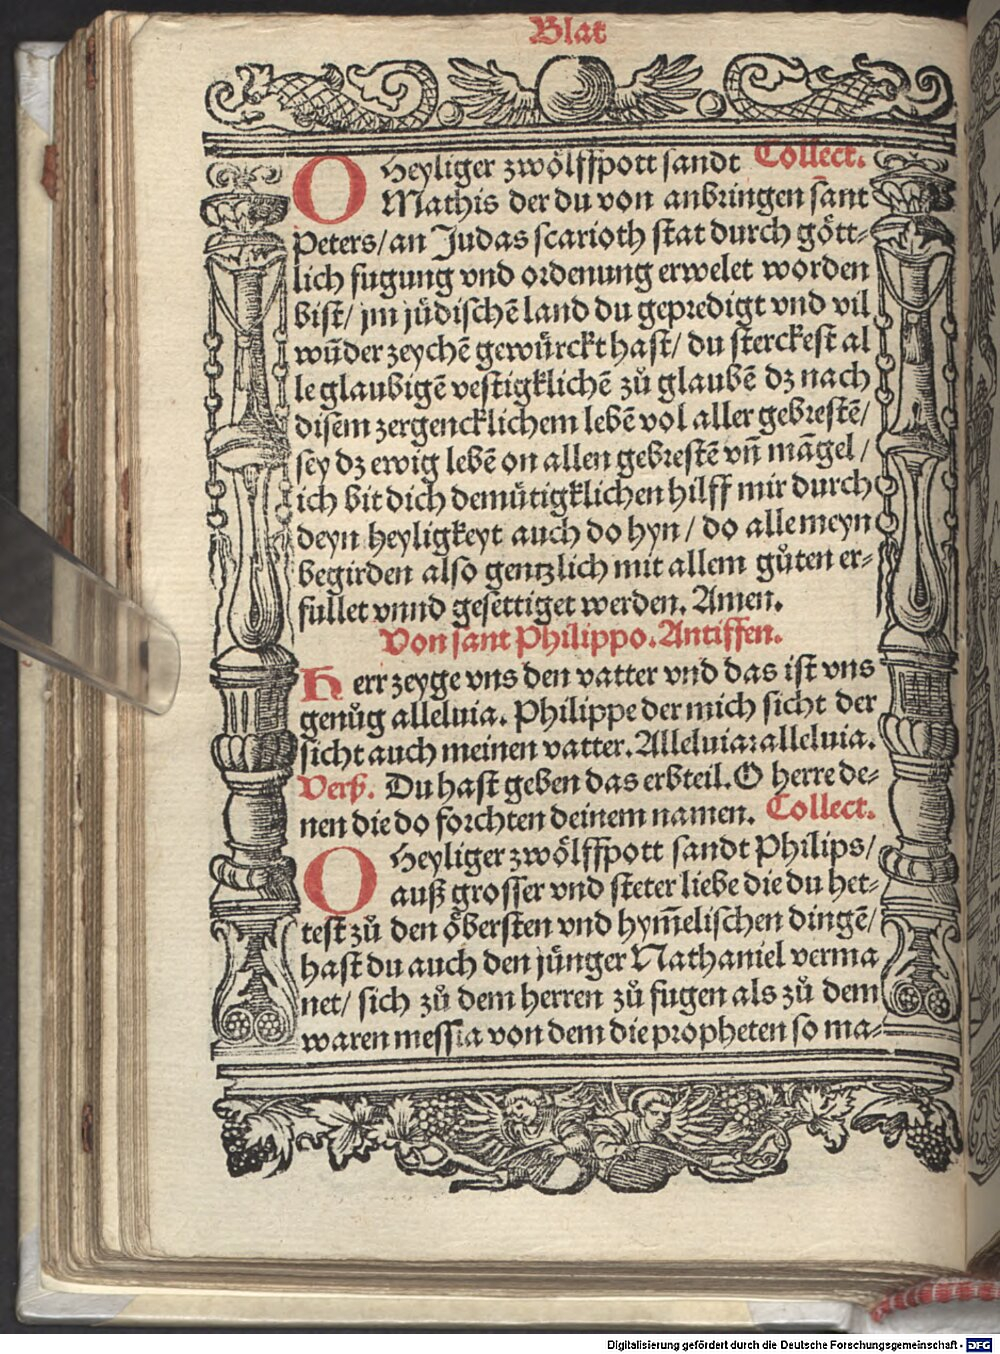 Blat
O Heyliger zwoͤlffpott sandt Collect.
Mathis der du von anbringen sant
Peters/ an Judas scarioth stat durch goͤtt-
lich fugung vnd ordenung erwelet worden
bist/ jm juͤdischē land du gepredigt vnd vil
wūder zeychē gewuͤrckt hast/ du sterckest al
le glaubigē vestigklichē zuͦ glaubē dz nach
disem zergencklichem lebē vol aller gebrestē/
sey dz ewig lebē on allen gebrestē vn̄ māgel/
ich bit dich demuͤtigklichen hilff mir durch
deyn heyligkeyt auch do hyn/ do alle meyn
begirden also gentzlich mit allem guͦten er-
fullet vnnd gesettiget werden. Amen.
Von sant Philippo. Antiffen.
Herr zeyge vns den vatter vnd das ist vns
genuͦg alleluia. Philippe der mich sicht der
sicht auch meinen vatter. Alleluia: alleluia.
Verß. Du hast geben das erbteil. O herre de-
nen die do forchten deinem namen. Collect.
O Heyliger zwoͤlffpott sandt Philips/
auß grosser vnd steter liebe die du het-
test zuͦ den oͤbersten vnd hym̄elischen dingē/
hast du auch den juͤnger Nathaniel verma
net/ sich zuͦ dem herren zuͦ fugen als zuͦ dem
waren messia von dem die propheten so ma-
Digitalisierung gefördert durch die Deutsche Forschungsgemeinschaft - DFG